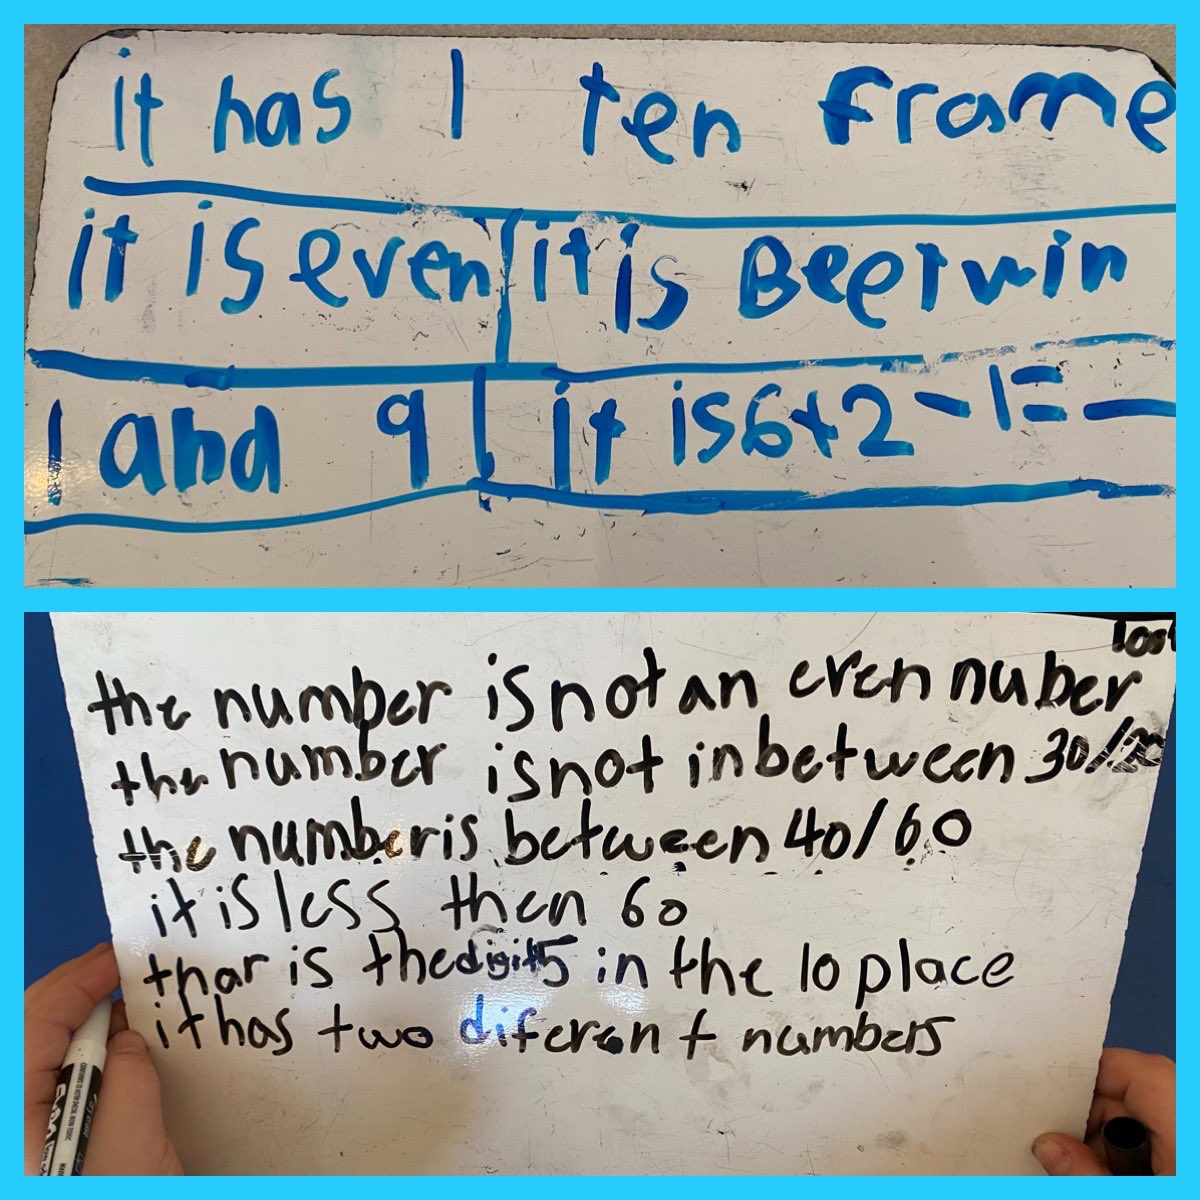 it has 1 ten frame
it is even it is Beetwin
1 and 9 it is 6+2-1=_
the number is not an even nuber
the number is not in between 30/
the number is between 40/60
it is less then 60
thar is the digit 5 in the 10 place
it has two diferent numbers